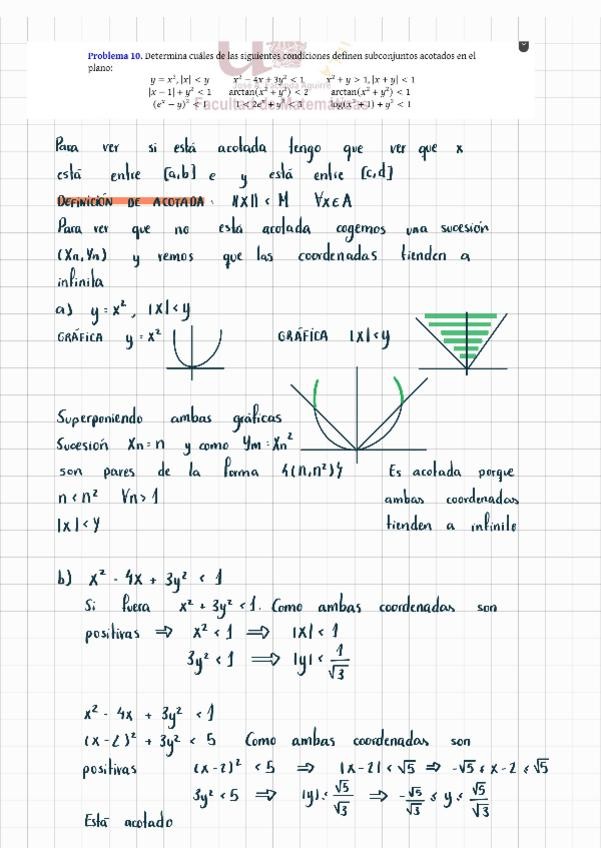 Problema 10. Determina cuáles de las siguientes condiciones definen subconjuntos acotados en el
plano:
y = x², |x| < y    x² − 4x + 3y² < 1    x² + y > 1, |x + y| < 1
|x − 1| + y² < 1    arctan(x² + y²) < 2    arctan(x² + y²) < 1
Facultad de Matemáticas
Para ver si está acotada tengo que ver que x
está entre [a,b] e y está entre [c,d]
DEFINICIÓN DE ACOTADA: ||x|| < M ∀x∈A
Para ver que no está acotada cogemos una sucesión
(Xn, Yn) y vemos que las coordenadas tienden a
infinita
a) y = x², |x| < y
GRÁFICA y = x²    GRÁFICA |x| < y
Superponiendo ambas gráficas
Sucesión Xn = n y como Ym = Xn²
son pares de la forma {(n, n²)}    Es acotada porque
n < n² ∀n > 1    ambas coordenadas
|x| < y    tienden a infinito
b) x² - 4x + 3y² < 1
Si fuera x² + 3y² < 1. Como ambas coordenadas son
positivas ⇒ x² < 1 ⇒ |x| < 1
3y² < 1 ⇒ |y| < 1/√3
x² - 4x + 3y² < 1
(x-2)² + 3y² < 5 Como ambas coordenadas son
positivas (x-2)² < 5 ⇒ |x-2| < √5 ⇒ -√5 ≤ x-2 ≤ √5
3y² < 5 ⇒ |y| < √5/√3 ⇒ -√5/√3 ≤ y ≤ √5/√3
Está acotado